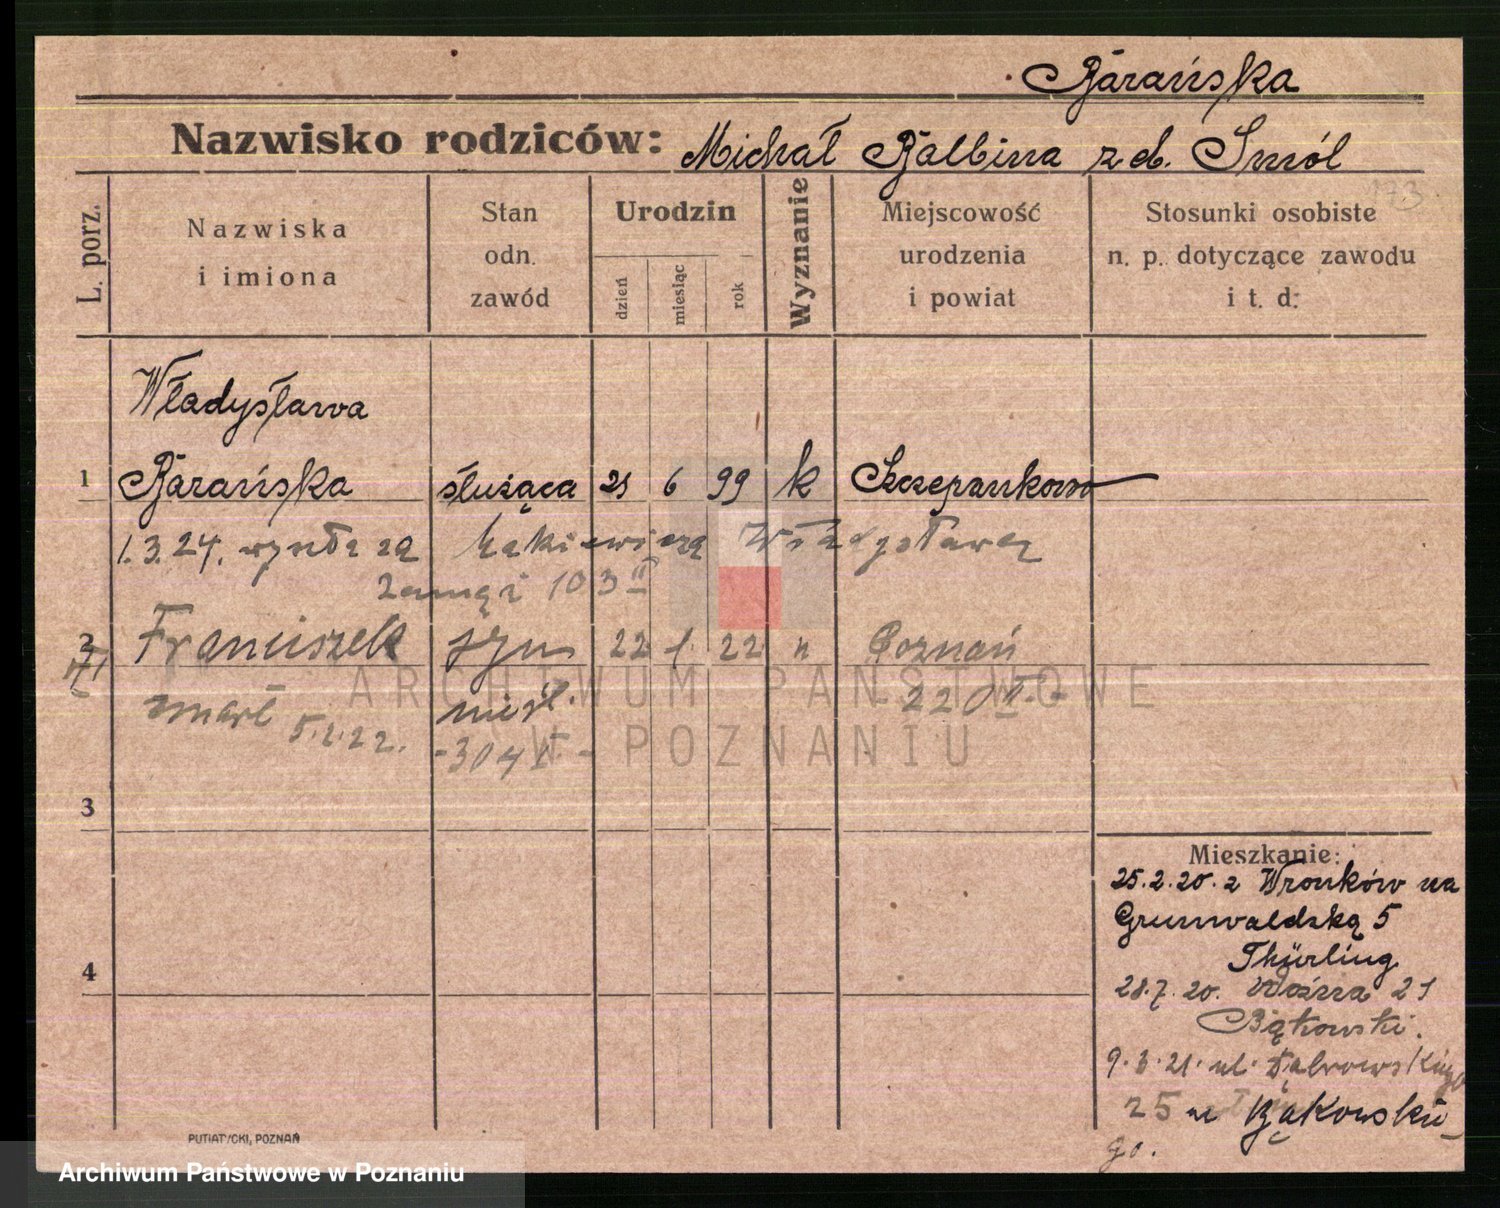 Barańska
Nazwisko rodziców: Michał Balbina z d. Smól
173
L. porz.
Nazwiska
i imiona
Stan
odn.
zawód
Urodzin
dzień
miesiąc
rok
Wyznanie
Miejscowość
urodzenia
i powiat
Stosunki osobiste
n. p. dotyczące zawodu
i t. d:
Władysława
1 Barańska służąca 21 6 99 k Szczepankowo
1.3.24. wyszła za Łakiewiczą Władysława
103 III
2 Franciszek syn 22 1. 22 n Poznań
zmarł nieśl. 220 II -
5.2.22. -304 V -
3
4
Mieszkanie:
25.2.20. z Wronków na
Grunwaldzką 5
Thürling
28.7.20. Woźna 21
Bątkowski.
9.3.21. ul. Dąbrowskiego
25 u Bąkowskie-
go.
PUTIATYCKI, POZNAŃ
ARCHIWUM PAŃSTWOWE
W POZNANIU
Archiwum Państwowe w Poznaniu